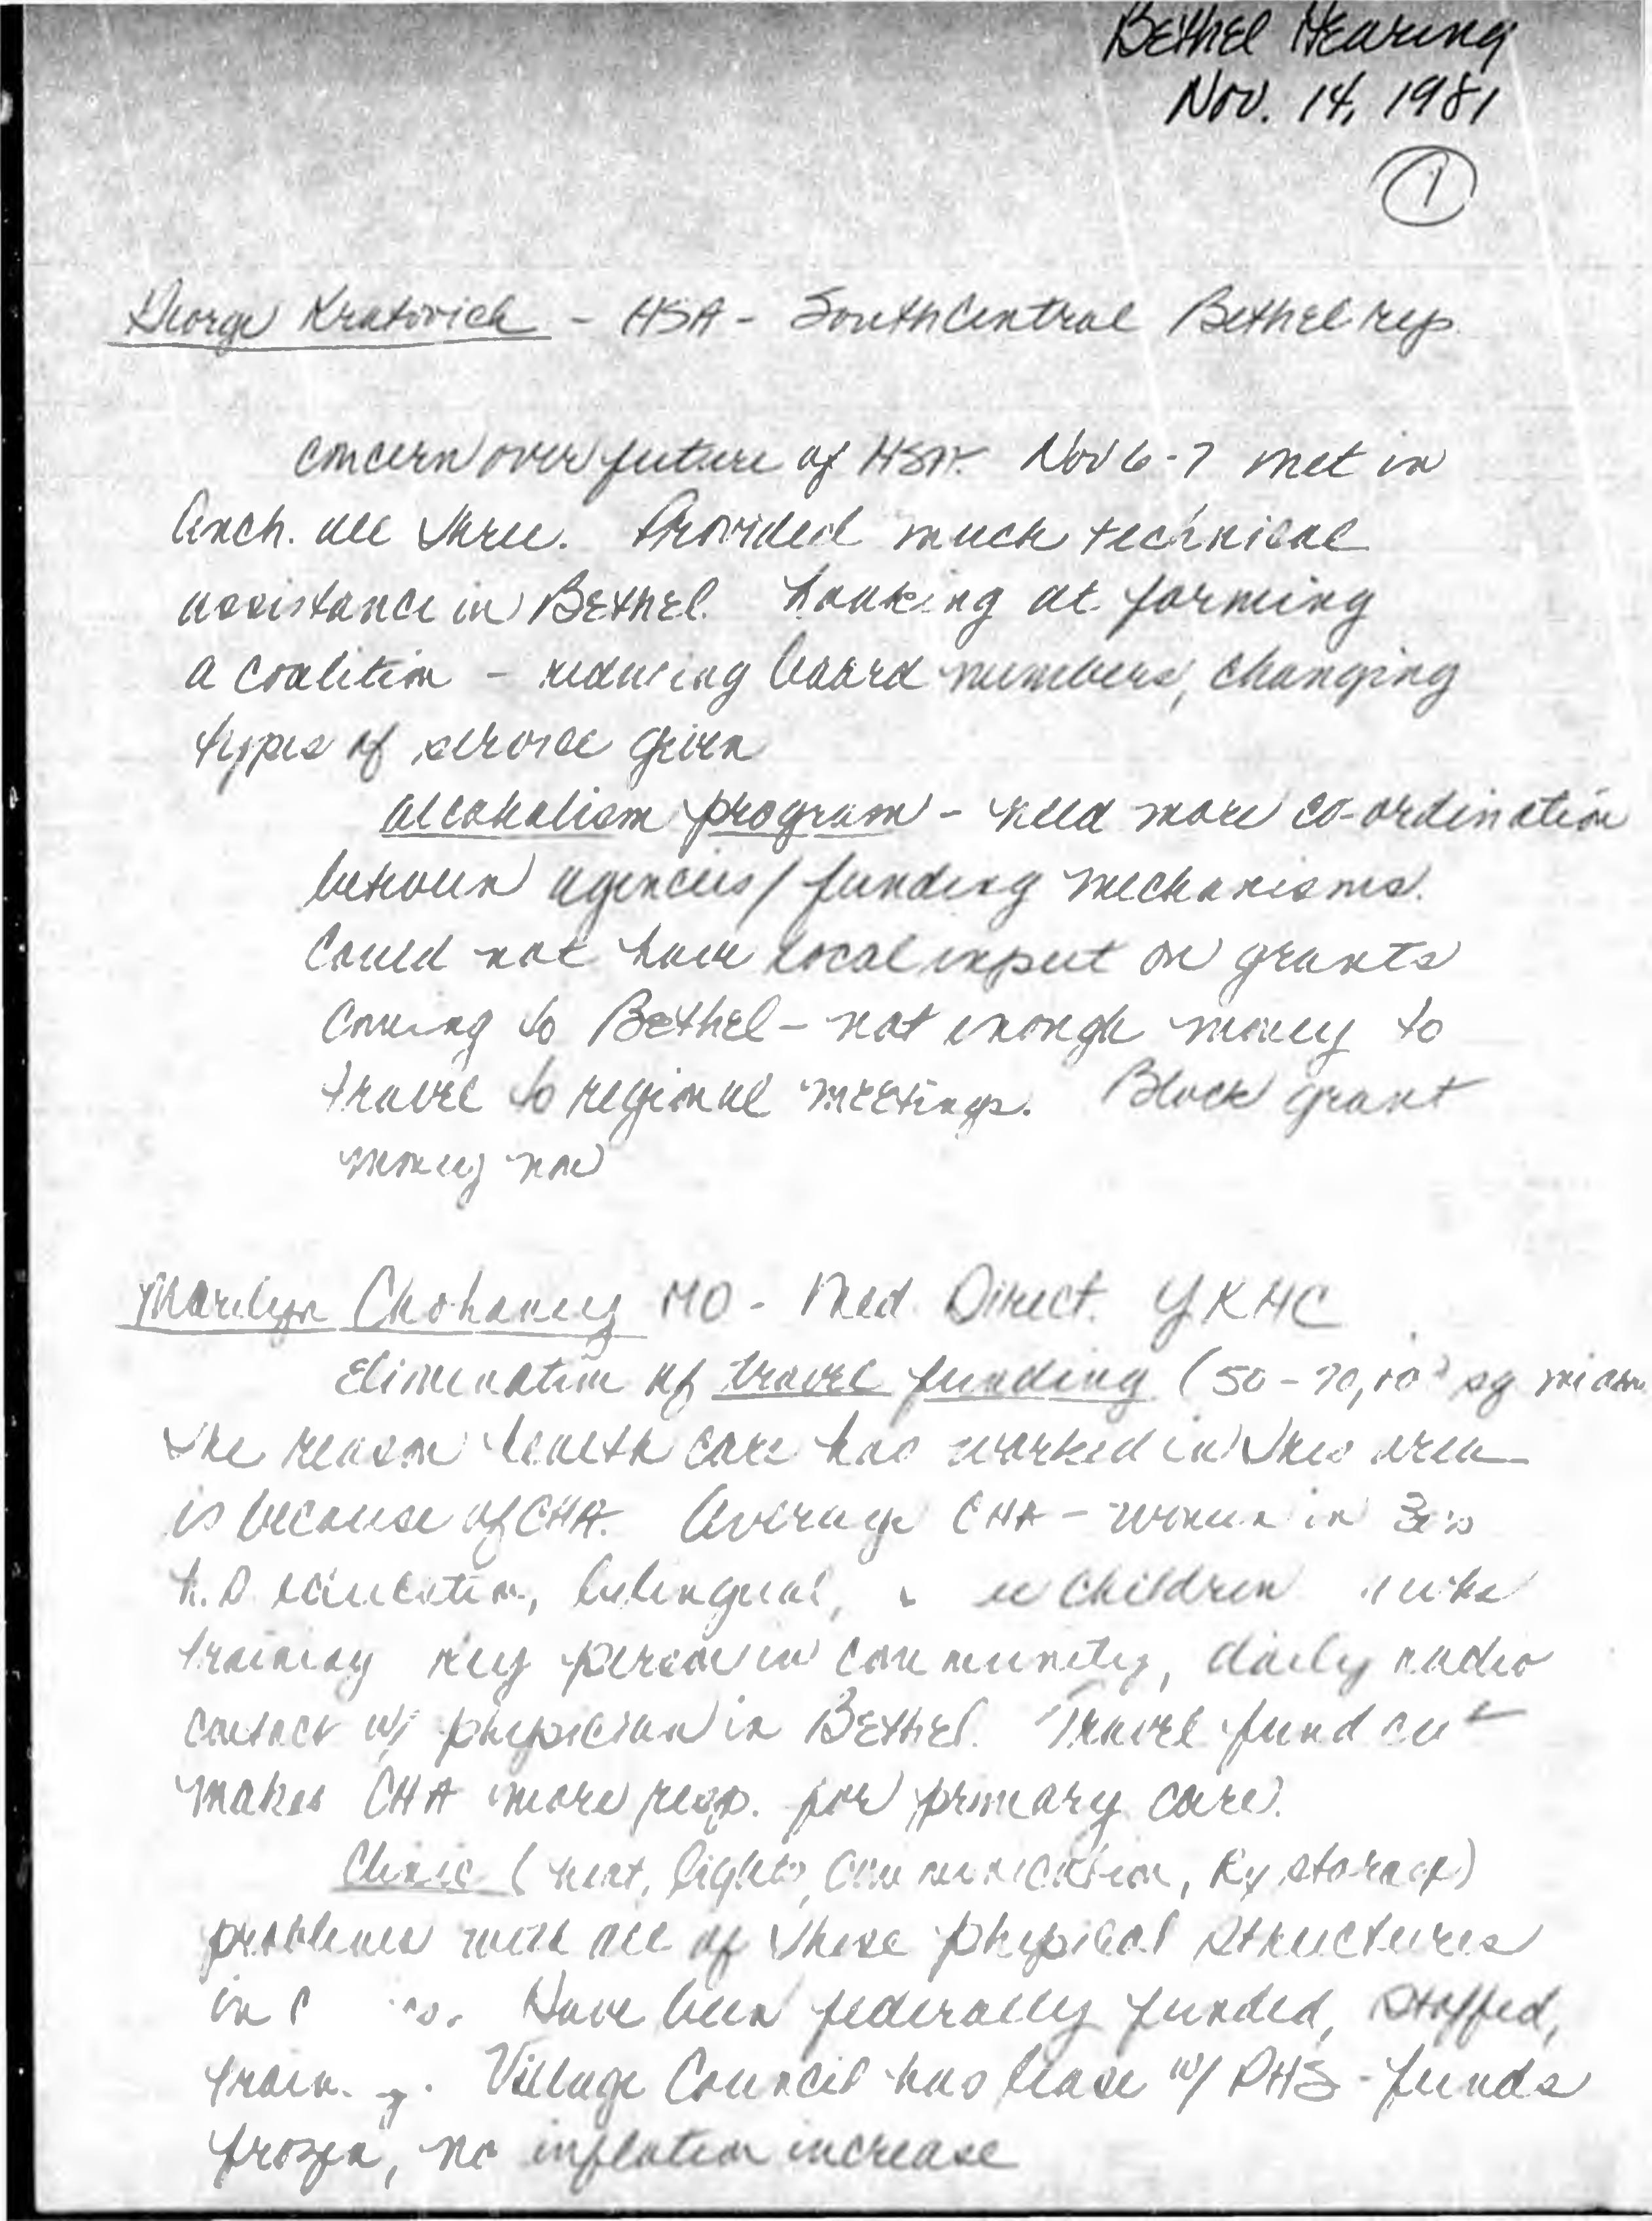 Bethel Hearing
Nov. 14, 1981
1
George Kratovich - HSA - SouthCentral Bethel rep
concern over future of HSA. Nov 6-7 met in
Anch. all three. Provided much technical
assistance in Bethel. Looking at forming
a coalition - reducing board numbers, changing
types of service given
alcoholism program - need more co-ordination
between agencies / funding mechanisms.
Could not have local input on grants
coming to Bethel - not enough money to
travel to regional meetings. Block grant
money now
Marilyn MD - Med. Direct. YKHC
Elimination of travel funding (50 - sq mi
The reason health care has worked in this area
is because of CHA. Average CHA - woman in 30's
education, bilingual, children
training key person in community, daily radio
contact w/ physician in Bethel. Travel fund cut
makes CHA more resp. for primary care.
Clinic (heat, lights, communication, Rx storage)
problems with all of these physical structures
in Have been federally funded, staffed,
Village Council has lease w/ PHS - funds
frozen, no inflation increase